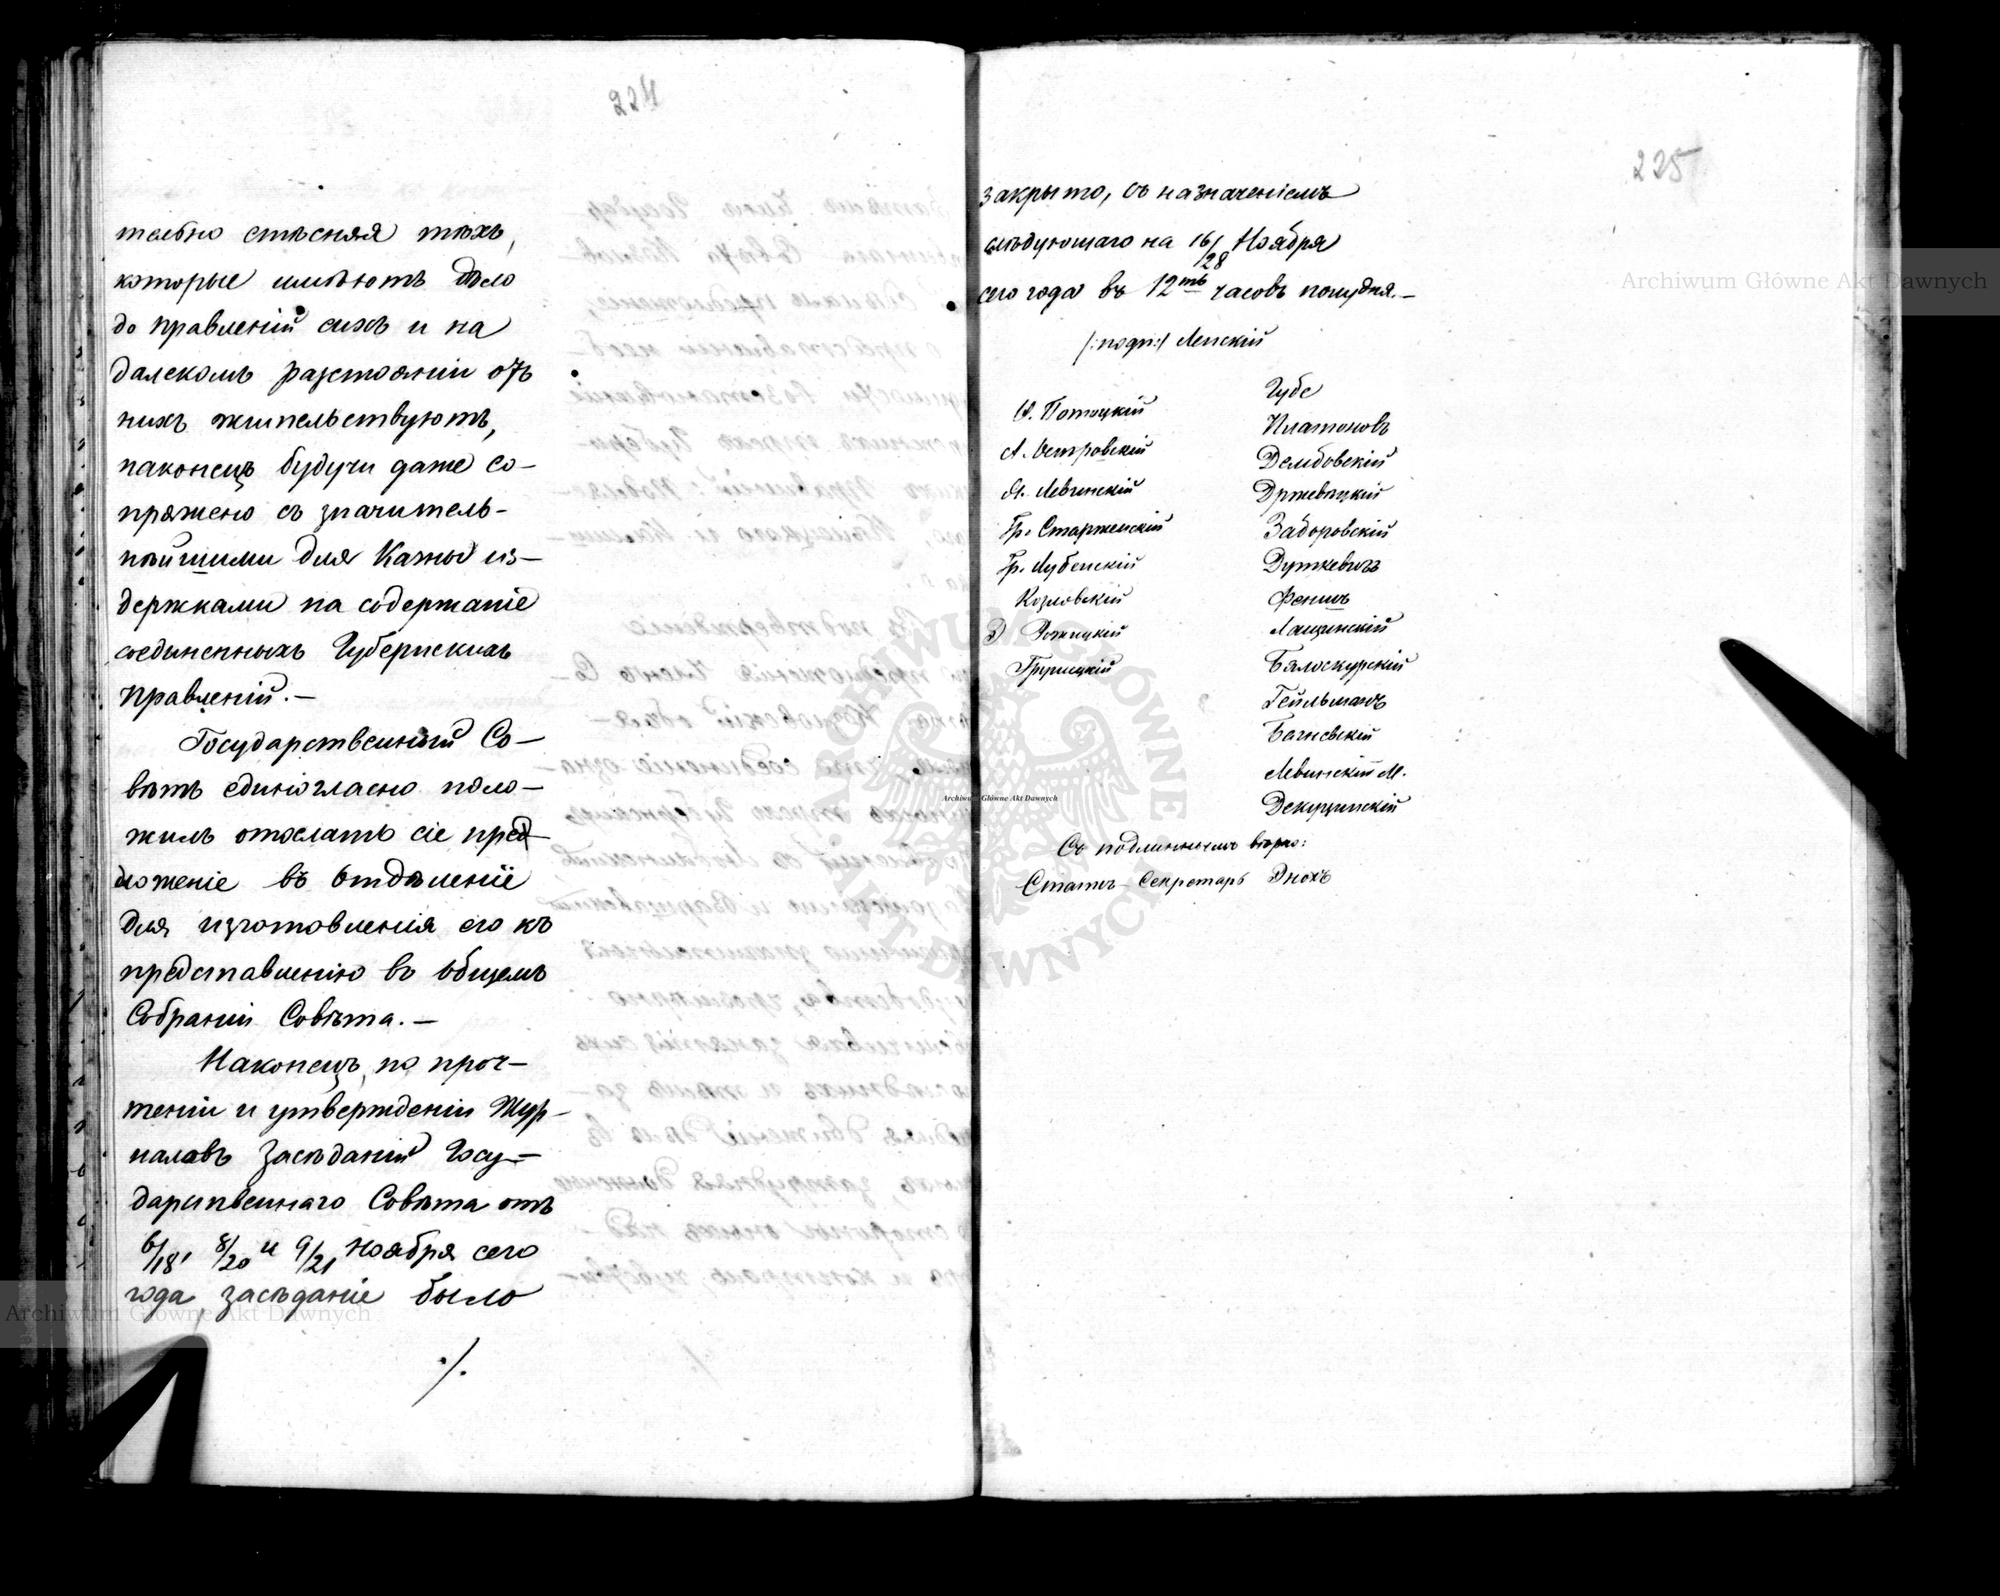 224
тельно стѣсняя тѣхъ,
которые имѣютъ дѣло
до Правленій сихъ и на
далекомъ разстояніи отъ
нихъ жительствуютъ,
наконецъ будучи даже со-
пряжено съ значитель-
нѣйшими для Казны из-
держками на содержаніе
соединенныхъ Губернскихъ
Правленій.—
Государственный Со-
вѣтъ единогласно поло-
жилъ отослать сіе пред-
ложеніе въ Отдѣленіе
для изготовленія его къ
представленію въ Общемъ
Собраніи Совѣта.—
Наконецъ, по проч-
теніи и утвержденіи Жур-
наловъ Засѣданій Госу-
дарственнаго Совѣта отъ
6/18, 8/20 и 9/21 Ноября сего
года, засѣданіе было
./.
225
закрыто, съ назначеніемъ
слѣдующаго на 16/28 Ноября
сего года въ 12ть часовъ полудня.—
/:подп:/ Ленскій
Губе
Потоцкій
Платоновъ
А. Островскій
Дембовскій
Левинскій
Држевецкій
Гр. Старженскій
Задоровскій
Гр. Лубенскій
Дуткевичъ
Козловскій
Феншъ
Лащинскій
Грушецкій
Бялоскурскій
Гейльманъ
Багневскій
Левинскій М.
Декуцинскій
Съ подлиннымъ вѣрно:
Статсъ-Секретарь
Archiwum Główne Akt Dawnych
Archiwum Główne Akt Dawnych
Archiwum Główne Akt Dawnych
ARCHIWUM GŁÓWNE AKT DAWNYCH